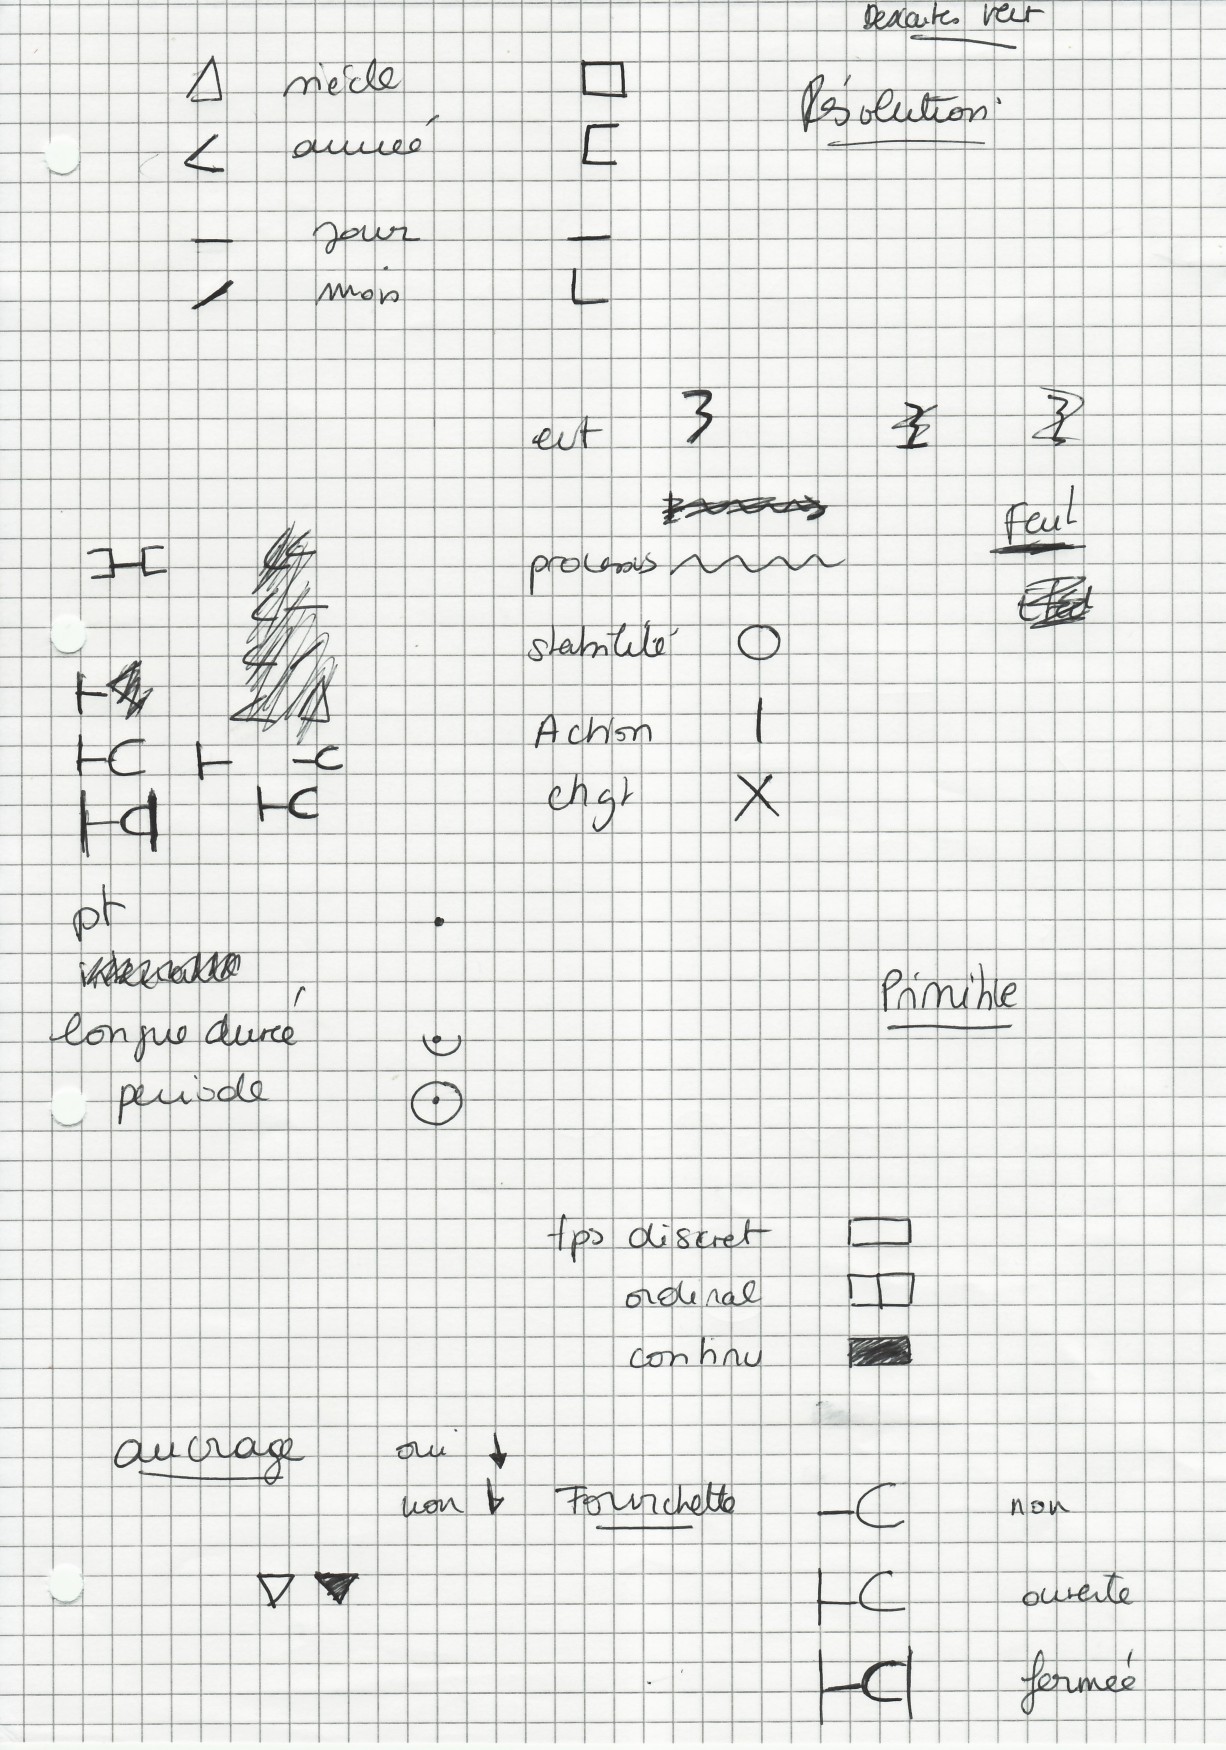 Descartes vert
siècle
Résolution
année
jour
mois
evt
Feul
processus
stabilité
Action
chgt
pt
longue durée
Primitive
periode
tps discret
ordinal
continu
ancrage oui
non Fourchette non
ouverte
fermée